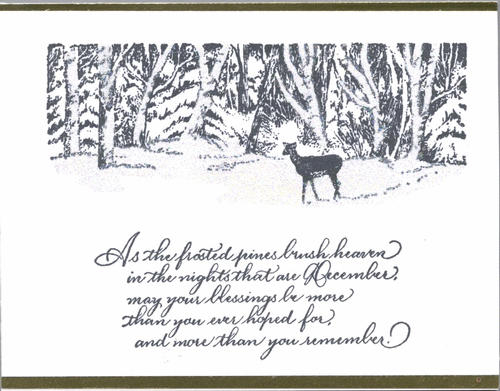 As the frosted pines brush heaven
in the nights that are December,
may your blessings be more
than you ever hoped for,
and more than you remember.